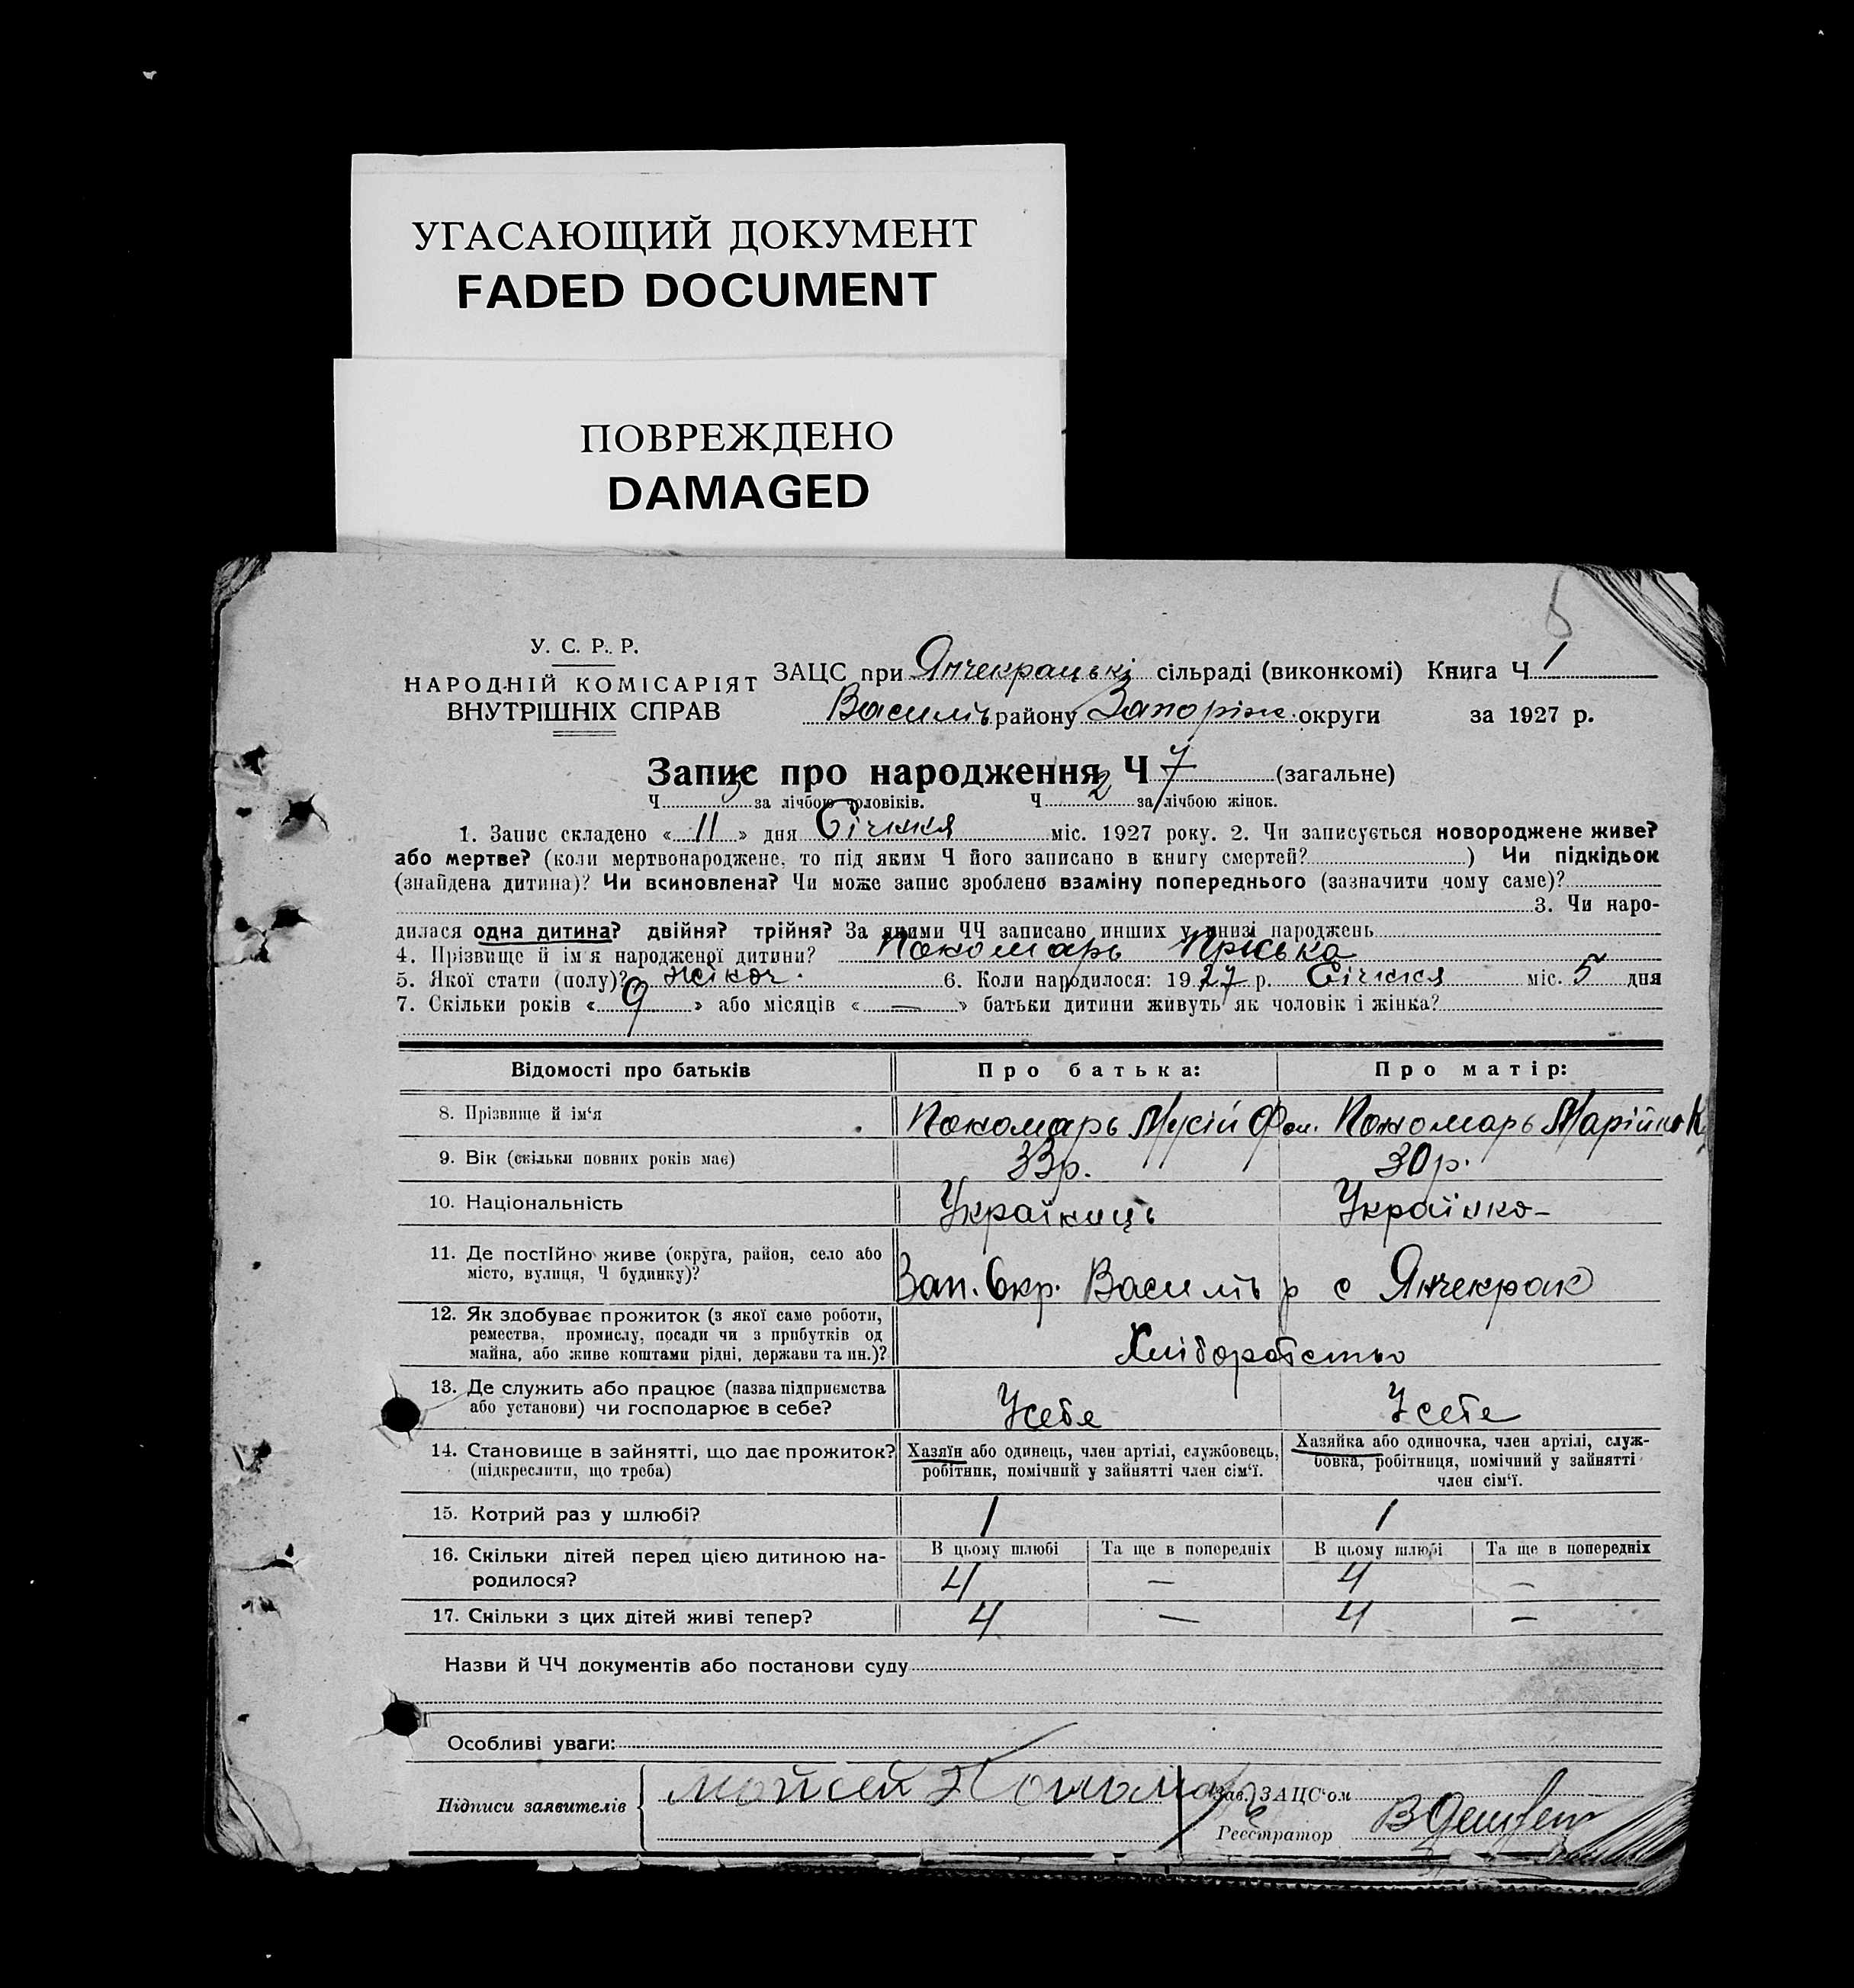 УГАСАЮЩИЙ ДОКУМЕНТ
FADED DOCUMENT
ПОВРЕЖДЕНО
DAMAGED
5
У. С. Р. Р.
НАРОДНІЙ КОМІСАРІЯТ
ВНУТРІШНІХ СПРАВ
ЗАЦС при Янчекрацькі сільраді (виконкомі) Книга Ч 1
Василів району Запоріж. округи за 1927 р.
Запис про народження Ч 7 (загальне)
Ч 5 за лічбою чоловіків. Ч 2 за лічбою жінок.
1. Запис складено « 11 » дня Січня міс. 1927 року. 2. Чи записується новороджене живе?
або мертве? (коли мертвонароджене, то під яким Ч його записано в книгу смертей? ) Чи підкідьок
(знайдена дитина)? Чи всиновлена? Чи може запис зроблено взаміну попереднього (зазначити чому саме)?
3. Чи наро-
дилася одна дитина? двійня? трійня? За якими ЧЧ записано инших у книзі народжень
4. Прізвище й ім'я народженої дитини? Пономарь Пріська
5. Якої стати (полу)? жіноч. 6. Коли народилося: 1927 р. Січня міс. 5 дня
7. Скільки років « 9 » або місяців « — » батьки дитини живуть як чоловік і жінка?
Відомості про батьків Про батька: Про матір:
8. Прізвище й ім'я Пономарь Мусій Пономарь Марійка К
9. Вік (скільки повних років має) 33р. 30р.
10. Національність Українець Українка
11. Де постійно живе (округа, район, село або
місто, вулиця, Ч будинку)? Зап. Окр. Василів р с Янчекрак
12. Як здобуває прожиток (з якої саме роботи,
ремества, промислу, посади чи з прибутків од
майна, або живе коштами рідні, держави та ин.)? Хліборобство
13. Де служить або працює (назва підприємства
або установи) чи господарює в себе? Усебе Усебе
14. Становище в зайнятті, що дає прожиток?
(підкреслити, що треба)
Хазяїн або одинець, член артілі, службовець,
робітник, помічний у зайнятті член сім'ї.
Хазяйка або одиночка, член артілі, служ-
бовка, робітниця, помічний у зайнятті
член сім'ї.
15. Котрий раз у шлюбі? 1 1
16. Скільки дітей перед цією дитиною на-
родилося?
В цьому шлюбі Та ще в попередніх В цьому шлюбі Та ще в попередніх
4 — 4 —
17. Скільки з цих дітей живі тепер? 4 — 4 —
Назви й ЧЧ документів або постанови суду
Особливі уваги:
Підписи заявителів мойсей Пономарь (Зав.) ЗАЦС'ом
Реєстратор